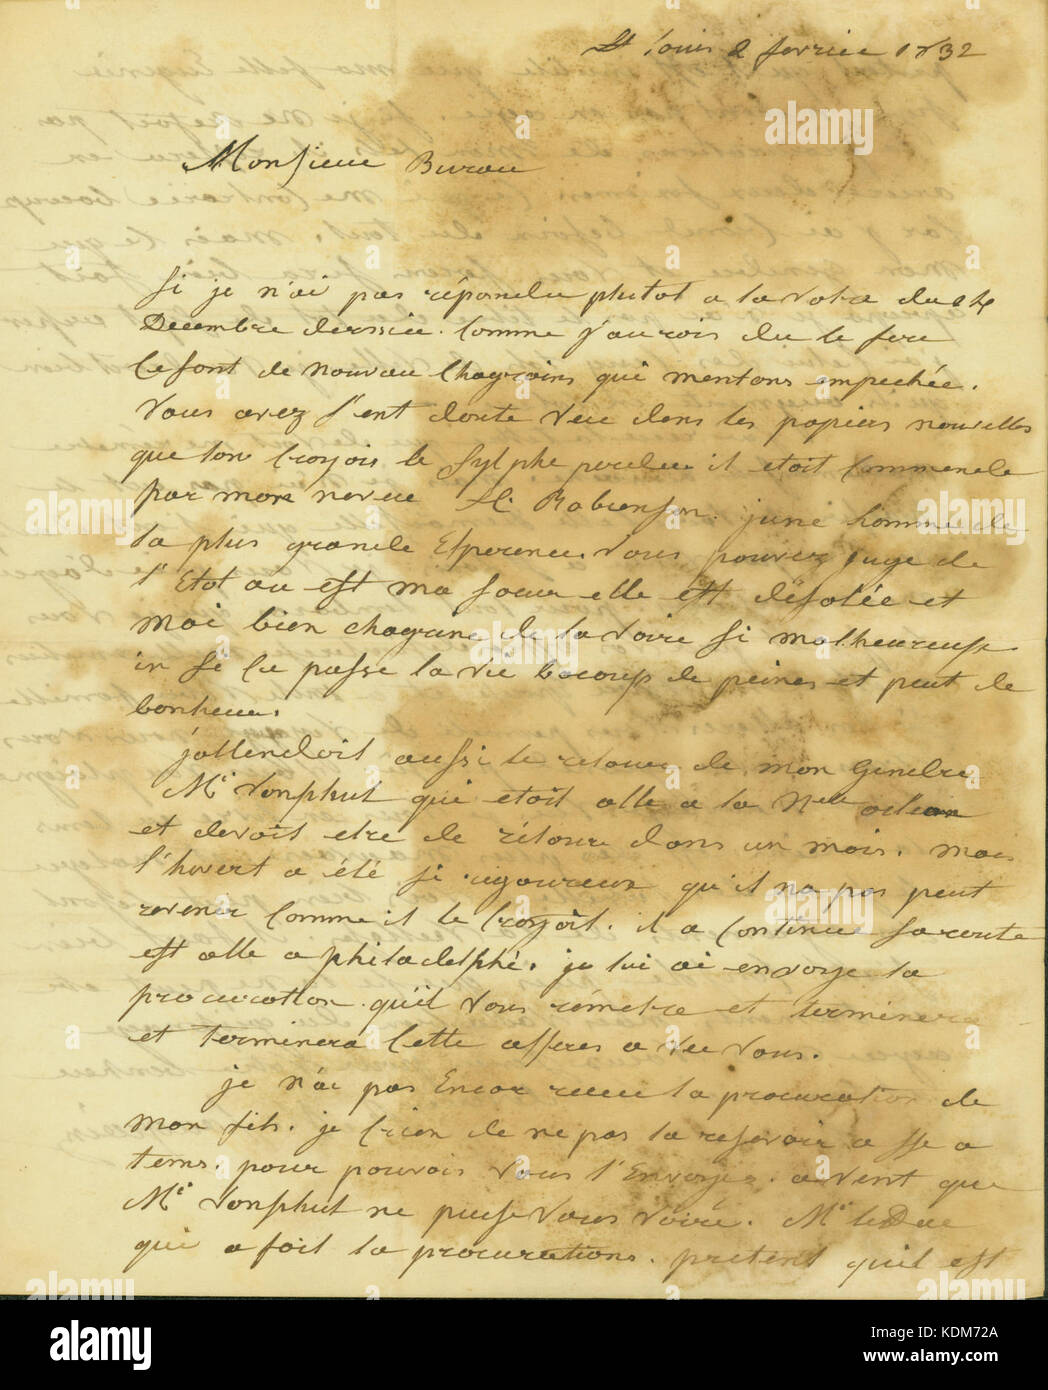 St Louis 2 fevrier 1832
Monsieur Bureau
Si je n'ai pas répondu plutot a la votre du 24
Decembre dernier. Comme j'aurois du le fere
Ce sont de nouvau Chagrains qui mentons empechée.
Vous avez s'ent doute veu dens les papiers nouvelles
que lon Croyois le Sylphe perdu il etoit Commende
par mon neveu H. Robienson. june homme de
la plus grande Esperence. Vous pouvez juge de
l'Etat ou est ma soeur elle est désolée et
moi bien chagrine de la voire si malheureuse.
in si Ce passe la vie bocoup de peines et peut de
bonheur.
j'attendoit aussi le retour de mon Gendre
Mr Vonphul qui etoit alle a la Nelle
et devoit etre de rétour dans un mois. mais
l'hivert a été si rigoureux qu'il na pas peut
revenir Comme il le Croyoit. il a Continue sa route
est alle a philadelphi. je lui ai envoye la
procuration quil Vous rémetra et terminera
et terminera Cette afferes a vec Vous.
je n'ai pas Encor recue la procuration de
mon fils. je Crien de ne pas la resevoir a sse a
tems. pour pouvois Vous l'Envoyez. avent que
Mr Vonphul ne puise Vous Voire. Mr leDuc
qui a fait la procurations. pretent quil est
alamy stock photo
KDM72A
www.alamy.com